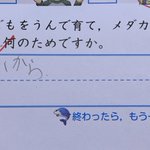 どもをうんで育て，メダカ
何のためですか。
から
終わったら，もう一